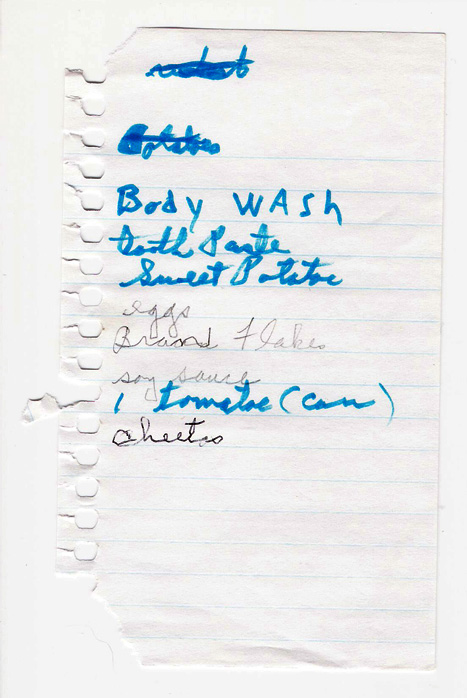 Potatoes
Body WASh
tooth Paste
Sweet Potatoe
eggs
Brand Flakes
soy sauce
1 tomatoe (can)
cheetos